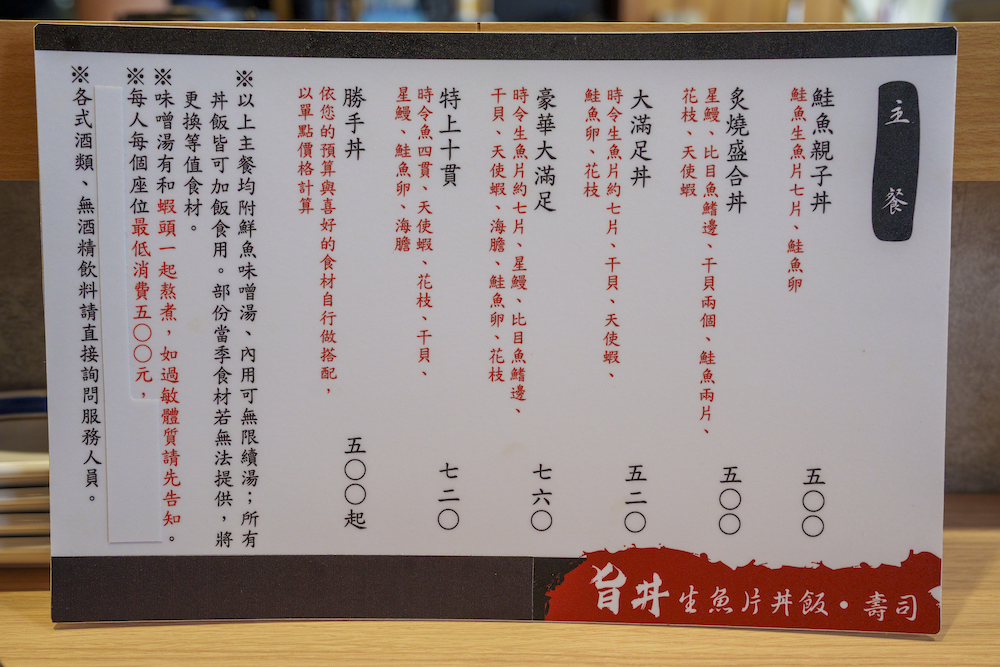 主餐
鮭魚親子丼 五〇〇
鮭魚生魚片七片、鮭魚卵
炙燒盛合丼 五〇〇
星鰻、比目魚鰭邊、干貝兩個、鮭魚兩片、
花枝、天使蝦
大滿足丼 五二〇
時令生魚片約七片、干貝、天使蝦、
鮭魚卵、花枝
豪華大滿足 七六〇
時令生魚片約七片、星鰻、比目魚鰭邊、
干貝、天使蝦、海膽、鮭魚卵、花枝
特上十貫 七二〇
時令魚四貫、天使蝦、花枝、干貝、
星鰻、鮭魚卵、海膽
勝手丼 五〇〇起
依您的預算與喜好的食材自行做搭配，
以單點價格計算
※以上主餐均附鮮魚味噌湯、內用可無限續湯；所有
丼飯皆可加飯食用。部份當季食材若無法提供，將
更換等值食材。
※味噌湯有和蝦頭一起熬煮，如過敏體質請先告知。
※每人每個座位最低消費五〇〇元，
※各式酒類、無酒精飲料請直接詢問服務人員。
旨丼生魚片丼飯・壽司